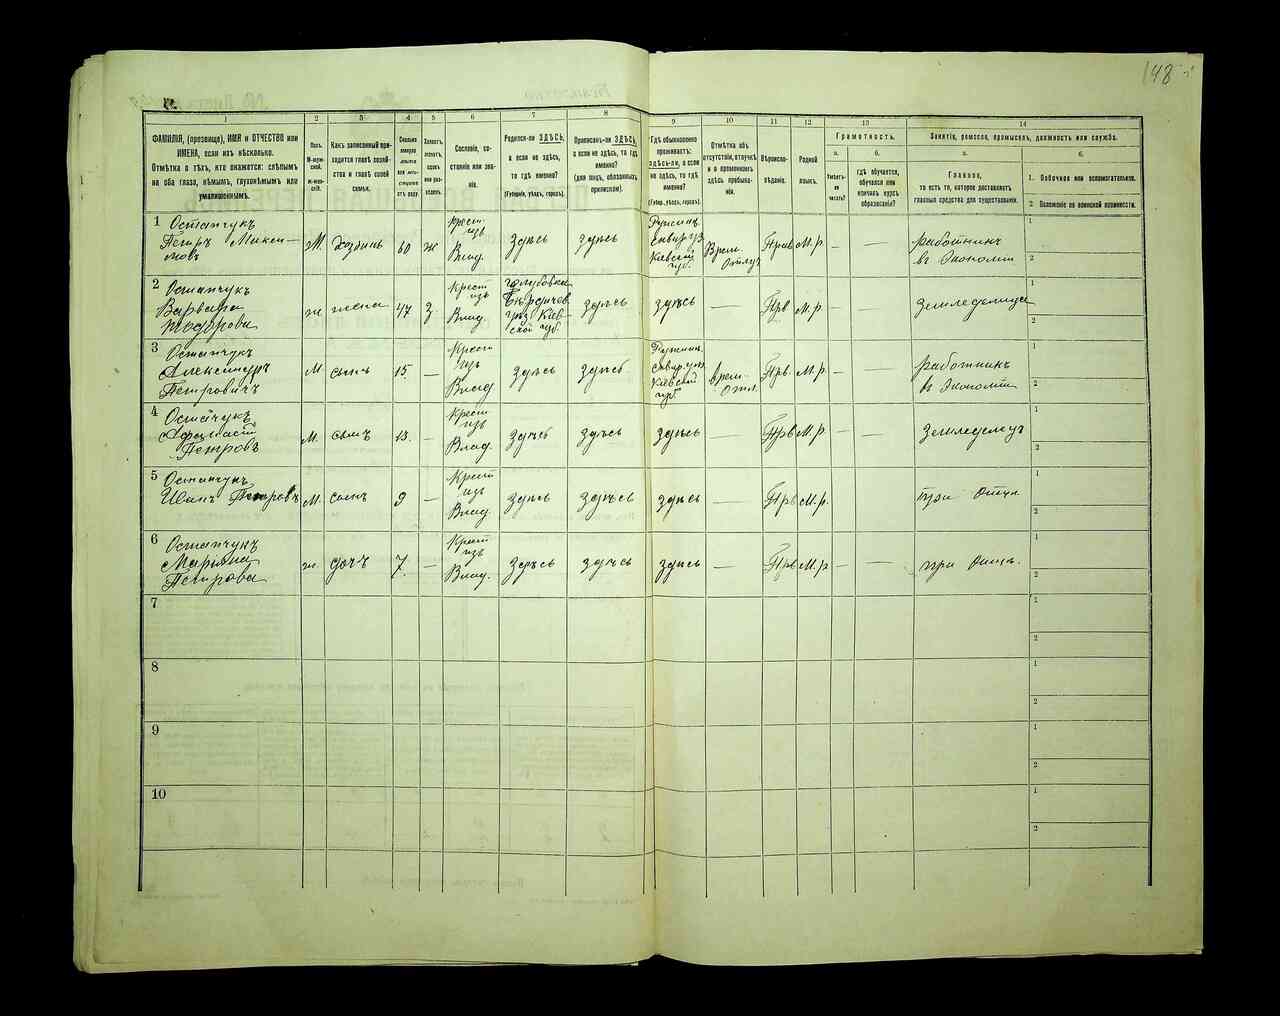 148
1
2
3
4
5
6
7
8
9
10
11
12
13
14
ФАМИЛІЯ, (прозвище), ИМЯ и ОТЧЕСТВО или
ИМЕНА, если ихъ нѣсколько.
Отмѣтка о тѣхъ, кто окажется: слѣпымъ
на оба глаза, нѣмымъ, глухонѣмымъ или
умалишеннымъ.
Полъ.
М-муж-
ской.
ж-жен-
скій.
Какъ записанный при-
ходится главѣ хозяй-
ства и главѣ своей
семьи.
Сколько
минуло
лѣтъ
или мѣся-
цевъ
отъ роду.
Холостъ,
женатъ,
вдовъ
или раз-
веденъ.
Сословіе, со-
стояніе или зва-
ніе.
Родился-ли ЗДѢСЬ,
а если не здѣсь,
то гдѣ именно?
(Губернія, уѣздъ, городъ).
Приписанъ-ли ЗДѢСЬ,
а если не здѣсь, то гдѣ
именно?
(для лицъ, обязанныхъ
припискою).
Гдѣ обыкновенно
проживаетъ:
здѣсь-ли, а если
не здѣсь, то гдѣ
именно?
(Губер., уѣздъ, городъ).
Отмѣтка объ
отсутствіи, отлучкѣ
и о временномъ
здѣсь пребыва-
ніи.
Вѣроиспо-
вѣданіе.
Родной
языкъ.
Грамотность.
а.
б.
Умѣетъ-
ли
читать?
гдѣ обучается,
обучался или
кончилъ курсъ
образованія?
Занятіе, ремесло, промыселъ, должность или служба.
а.
б.
Главное,
то есть то, которое доставляетъ
главныя средства для существованія.
1. Побочное или вспомогательное.
2 Положеніе по воинской повинности.
1 Остапчукъ
Петръ Макси-
мовъ
М
хозяинъ
60
ж
Крест.
изъ
Влад.
здѣсь
здѣсь
Сквир уз.
Кіевской
губ.
Врем.
Отлуч
Прав
М.р.
—
—
работникъ
въ Экономіи
1
2
2 Остапчукъ
Варвара
ж
жена
47
З
Крест
изъ
Влад.
Бердичев
уѣз Кіев-
ской губ.
здѣсь
здѣсь
—
Прв
М.р.
—
—
Земледелица
1
2
3 Остапчукъ
Александръ
Петровичъ
М
сынъ
15
—
Крест
изъ
Влад
здѣсь
здѣсь
Сквир. уѣз
Кіевской
губ
Врем-
Отл.
Прв.
М.р.
—
—
работникъ
въ Экономіи
1
2
4 Остапчукъ
Петровъ
М.
сынъ
13.
—
Крест
изъ
Влад.
здѣсь
здѣсь
здѣсь
—
Прв
М.р.
—
—
Земледелецъ
1
2
5 Остапчукъ
Иванъ Петровъ
М.
сынъ
9
—
Крест
изъ
Влад
здѣсь
здѣсь
здѣсь
—
Прв
М.р.
—
—
при Отцѣ
1
2
6 Остапчукъ
Маріяна
Петрова
ж.
дочь
7.
—
Крест
изъ
Влад.
здѣсь
здѣсь
здѣсь
—
Прв
М.р
—
—
при Отцѣ.
1
2
7
1
2
8
1
2
9
1
2
10
1
2